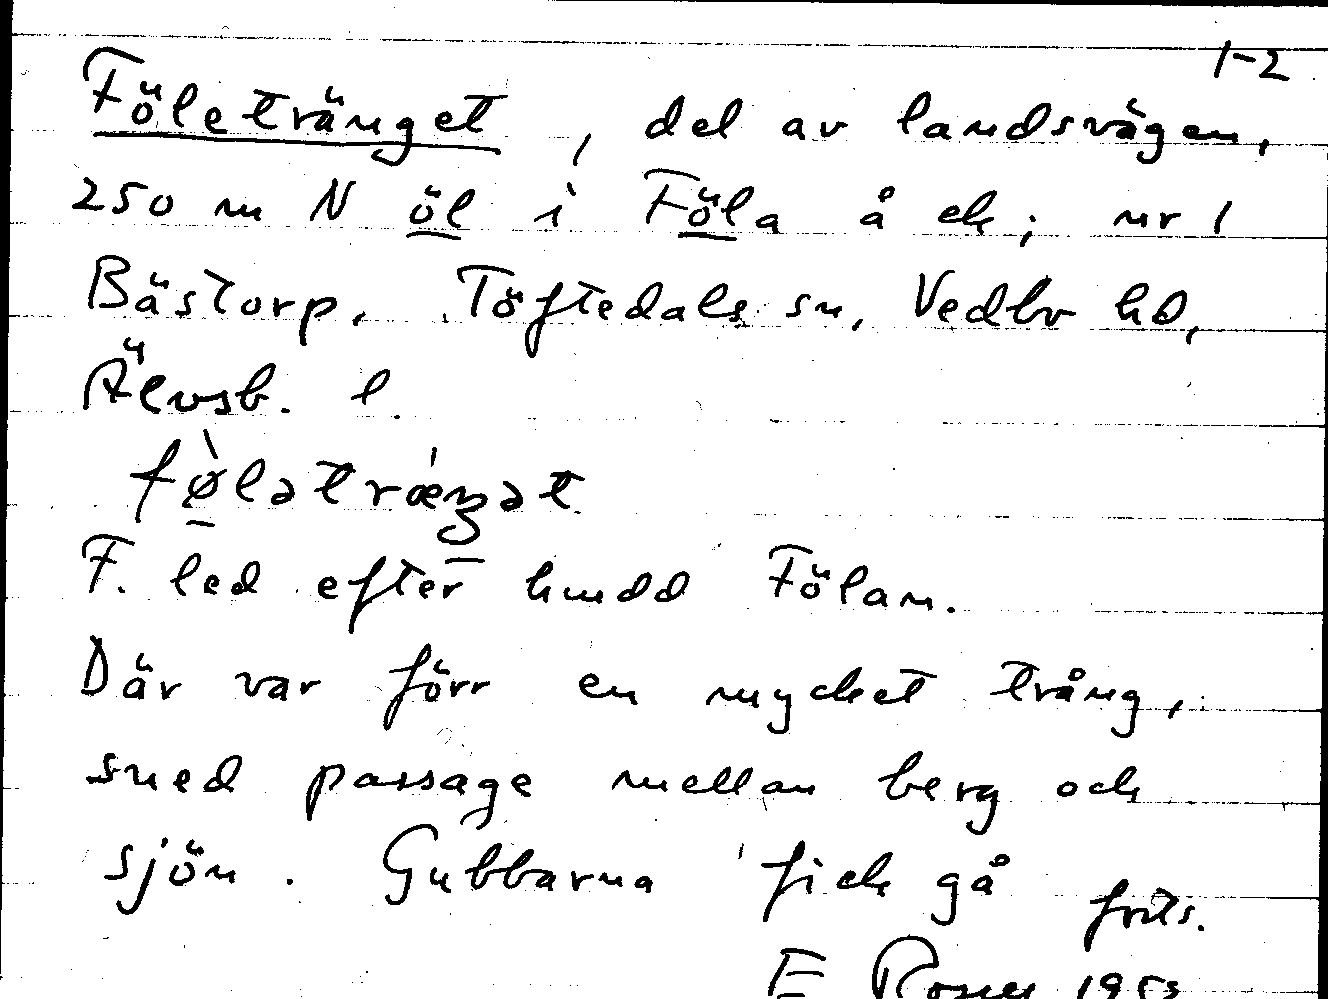 1-2
Föletränget, del av landsvägen,
250 m N öl i Föla å ek; nr 1
Bästorp, Töftedals sn, Vedbo hd,
Älvsb. l.
fø̀lətræ'ŋət
F. led efter hudd Fölan.
Där var förr en mycket trång,
sned passage mellan berg och
sjön. Gubbarna fick gå forts.
E 195